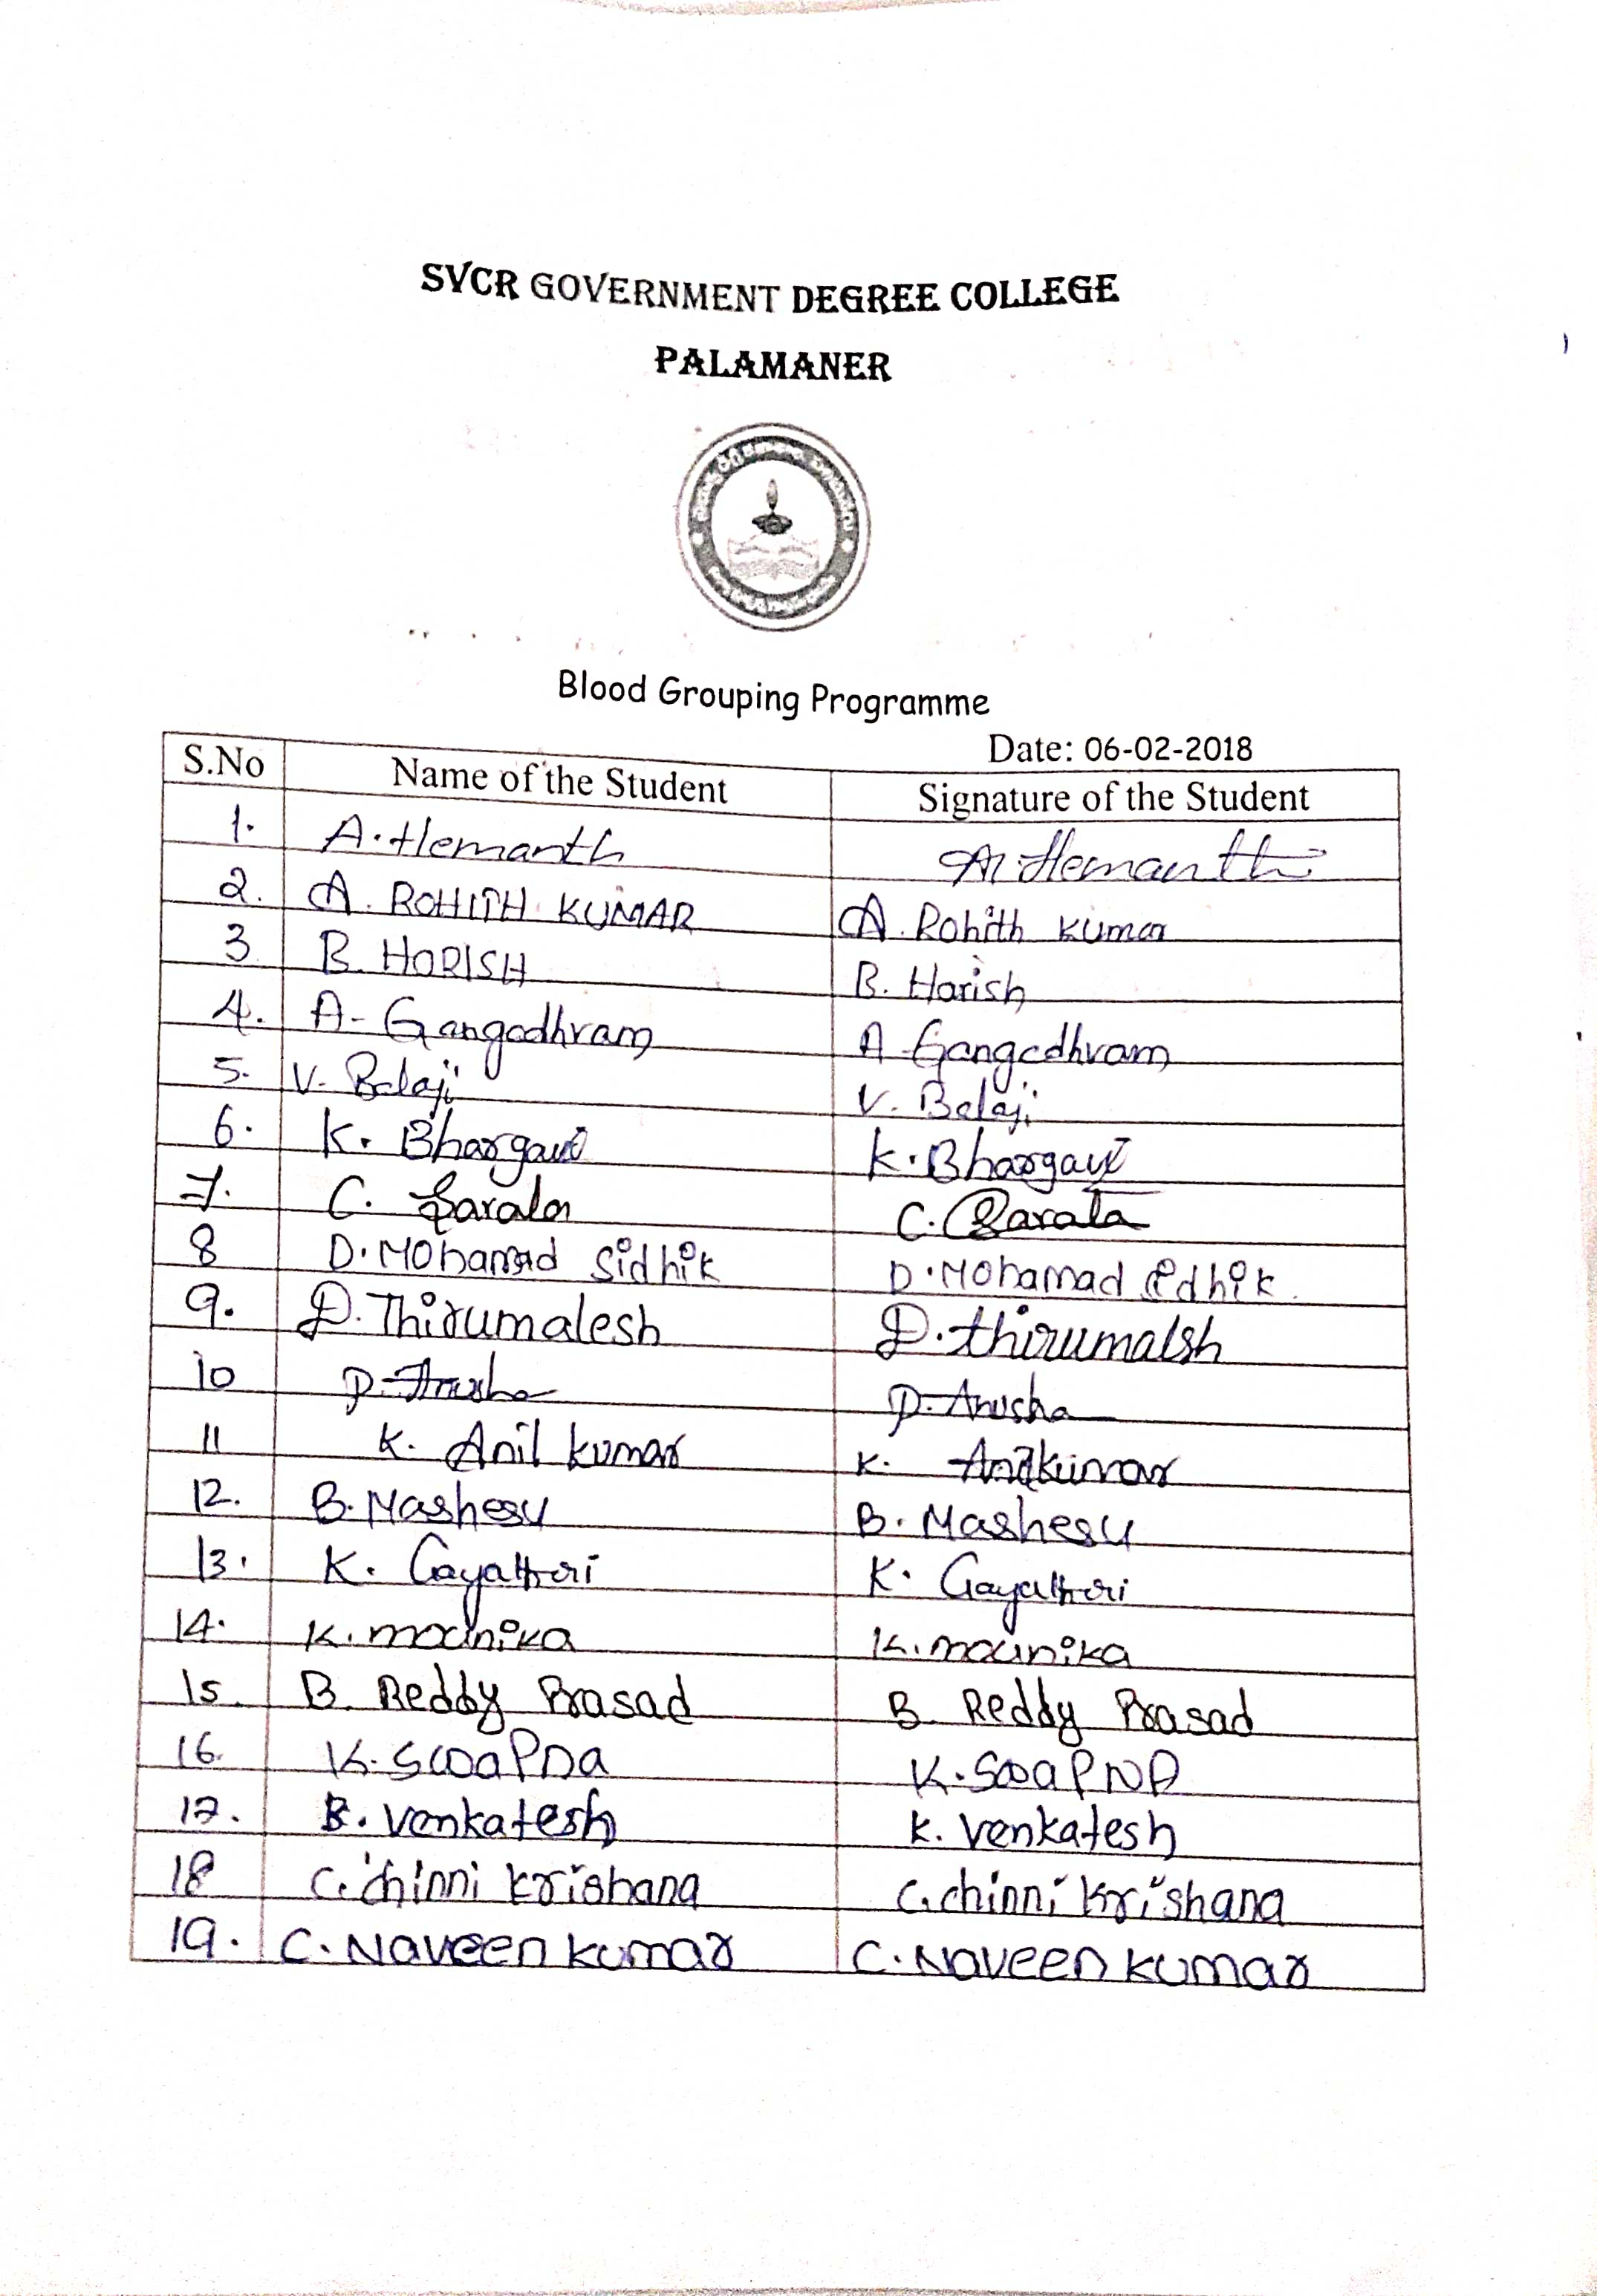 SVCR GOVERNMENT DEGREE COLLEGE
PALAMANER
Blood Grouping Programme
Date: 06-02-2018
S.No Name of the Student Signature of the Student
1. A. Hemanth A. Hemanth
2. A. ROHITH KUMAR A. Rohith Kumar
3 B. HORISH B. Harish
4. A- Gangadhram A Gangadhram
5. V. Balaji V. Balaji
6. K. Bhargavi K. Bhargavi
7. C. Sarala C. Sarala
8 D. Mohamad Sidhik D. Mohamad Sidhik
9. D. Thirumalesh D. thirumalsh
10 P. Anusha P. Anusha
11 K. Anil kumar K. Anilkumar
12. B. Mashesu B. Mashesu
13. K. Gayathri K. Gayathri
14. K. mounika K. mounika
15. B. Reddy Prasad B. Reddy Prasad
16. K. SwaPna K. SwaPNA
17. K. Venkatesh K. Venkatesh
18 C. chinni krishana C. chinni krishana
19. C. Naveen kumar C. Naveen kumar